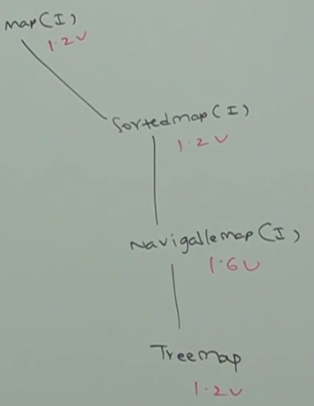 map(I)
1.2v
Sortedmap(I)
1.2v
Navigallemap(I)
1.6v
Treemap
1.2v